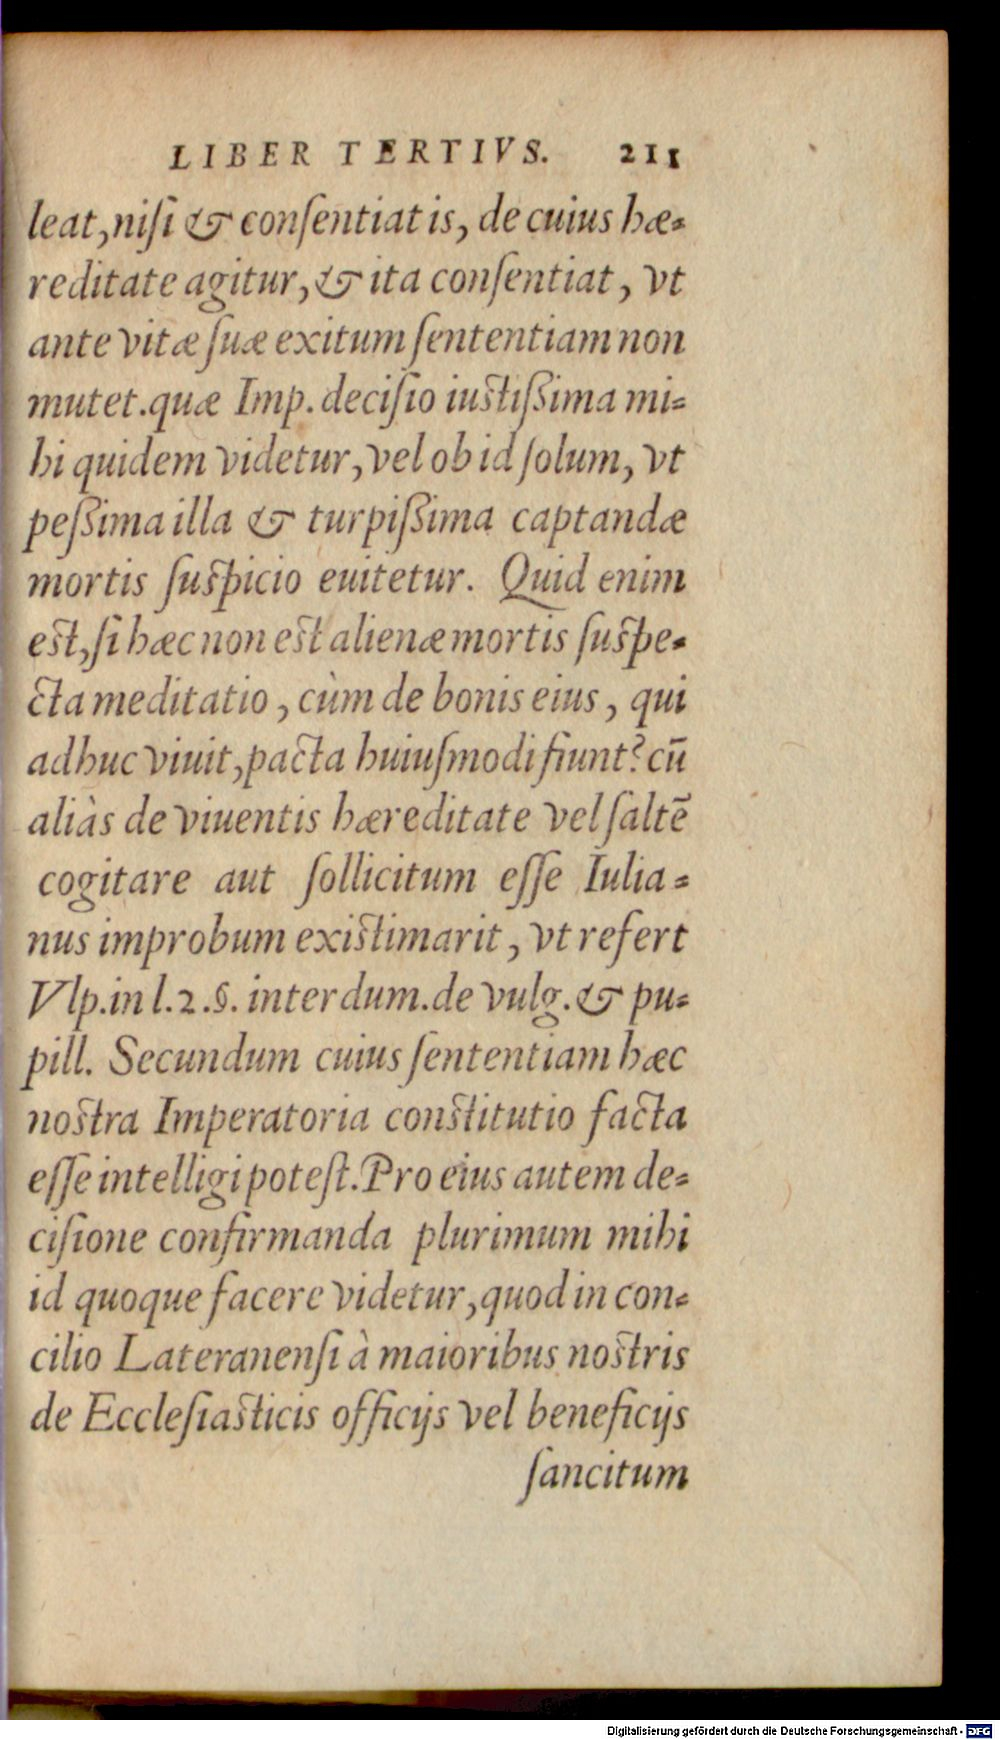 LIBER TERTIVS. 211
leat, niſi & conſentiat is, de cuius hæ-
reditate agitur, & ita conſentiat, vt
ante vitæ ſuæ exitum ſententiam non
mutet. quæ Imp. deciſio iuſtiſſima mi-
hi quidem videtur, vel ob id ſolum, vt
peſſima illa & turpiſſima captandæ
mortis ſuſpicio euitetur. Quid enim
eſt, ſi hæc non eſt alienæ mortis ſuſpe-
cta meditatio, cùm de bonis eius, qui
adhuc viuit, pacta huiuſmodi fiunt? cū
aliàs de viuentis hæreditate vel ſaltē
cogitare aut ſollicitum eſſe Iulia-
nus improbum exiſtimarit, vt refert
Vlp. in l. 2. §. interdum. de vulg. & pu-
pill. Secundum cuius ſententiam hæc
noſtra Imperatoria conſtitutio facta
eſſe intelligi poteſt. Pro eius autem de-
ciſione confirmanda plurimum mihi
id quoque facere videtur, quod in con-
cilio Lateranenſi à maioribus noſtris
de Eccleſiaſticis officijs vel beneficijs
ſancitum
Digitalisierung gefördert durch die Deutsche Forschungsgemeinschaft - DFG